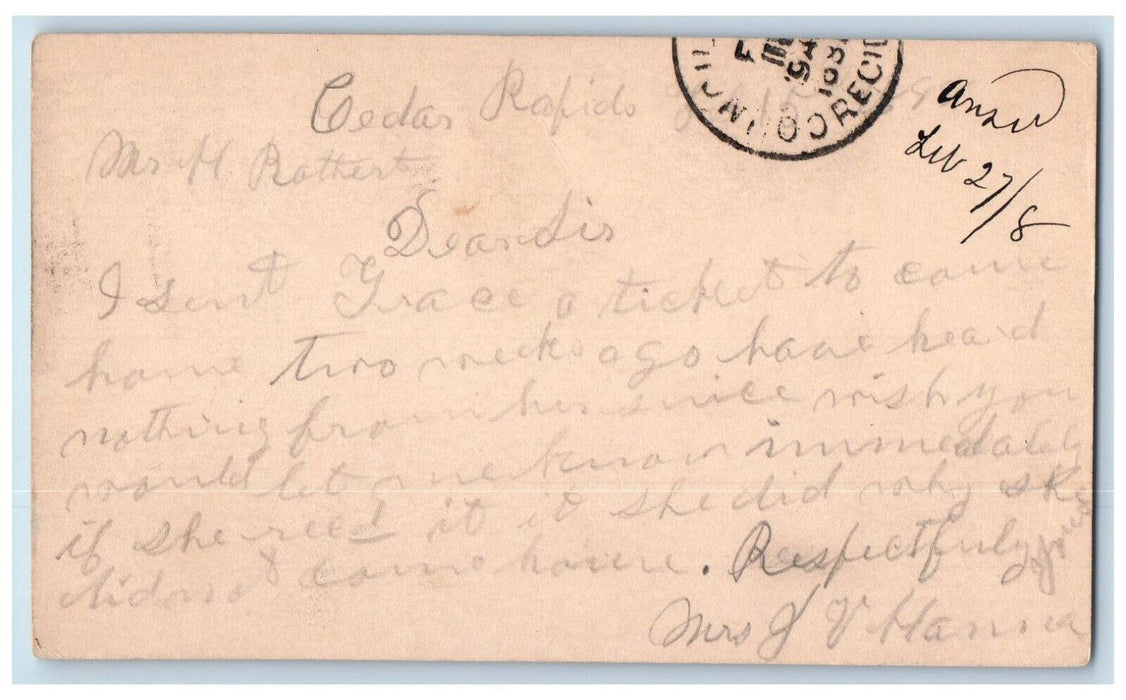 Cedar Rapids
Mr H Rathert
Dear Sir
I sent Grace a ticket to come
home two weeks ago have heard
nothing from her since wish you
would let me know immedately
if she recd it it she did why she
did not come home. Respectfuly yours
Mrs J V Hanna
Feb 27/8
RECD